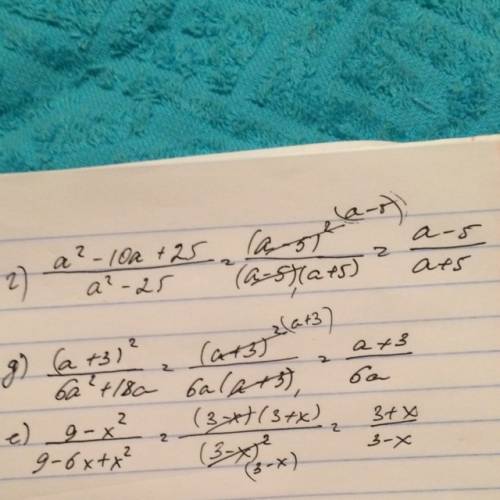 г) (a² - 10a + 25)/(a² - 25) = (a-5)² (a-5)/((a-5)(a+5)) = (a-5)/(a+5)
д) (a+3)²/(6a²+18a) = (a+3)² (a+3)/(6a(a+3)) = (a+3)/(6a)
е) (9-x²)/(9-6x+x²) = (3-x)(3+x)/((3-x)² (3-x)) = (3+x)/(3-x)